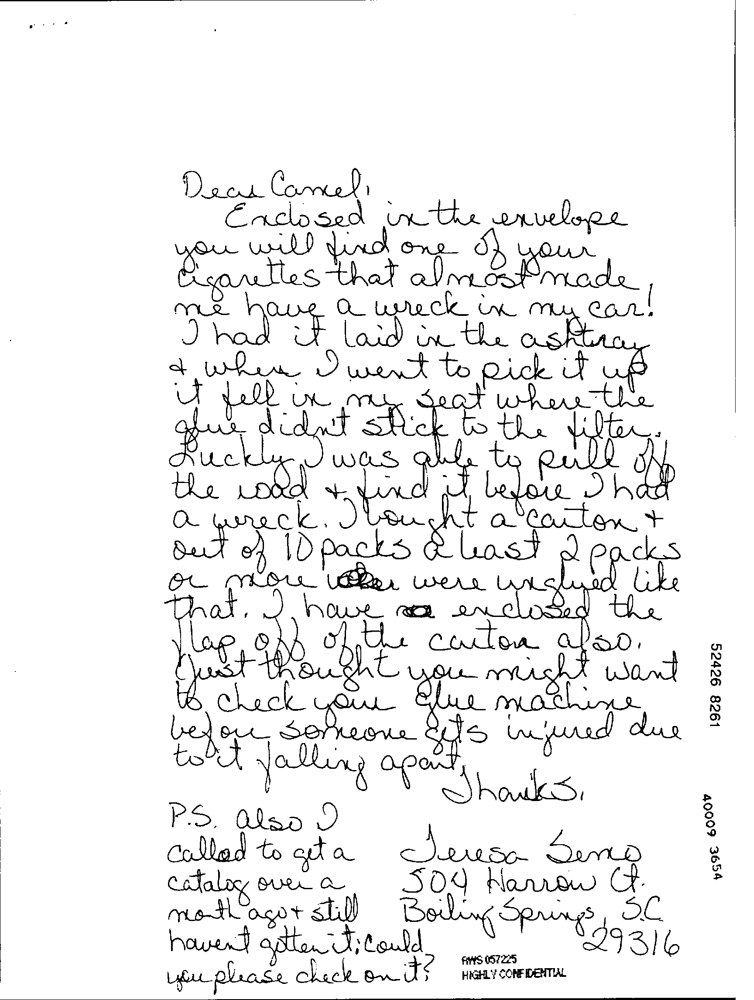 Dear Camel,
Enclosed in the envelope
you will find one of your
cigarettes that almost made
me have a wreck in my car!
I had it laid in the ashtray
& when I went to pick it up
it fell in my seat where the
glue didn't stick to the filter.
Luckly I was able to pull off
the road & find it before I had
a wreck. I bought a carton +
out of 10 packs a least 2 packs
or more were unglued like
that. I have enclosed the
flap off of the carton also.
Just thought you might want
to check your glue machine
before someone gets injured due
to it falling apart.
Thanks,
P.S. also I
called to get a
catalog over a
month ago & still
havent gotten it; could
you please check on it?
Teresa
504 Harrow Ct.
Boiling Springs, S.C.
29316
RWS 057225
HIGHLY CONFIDENTIAL
52426 8261
40009 3654